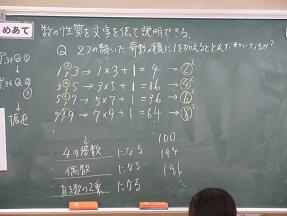 めあて 数の性質を文字を使って説明できる。
Q 2つの続いた奇数の積に1を加えるとどんな
1, 3 → 1×3+1=4 → 2²
3, 5 → 3×5+1=16 → 4²
5, 7 → 5×7+1=36 → 6²
7, 9 → 7×9+1=64 → 8²
100
4の倍数 になる 144
偶数 になる 196
ある数の2乗 になる